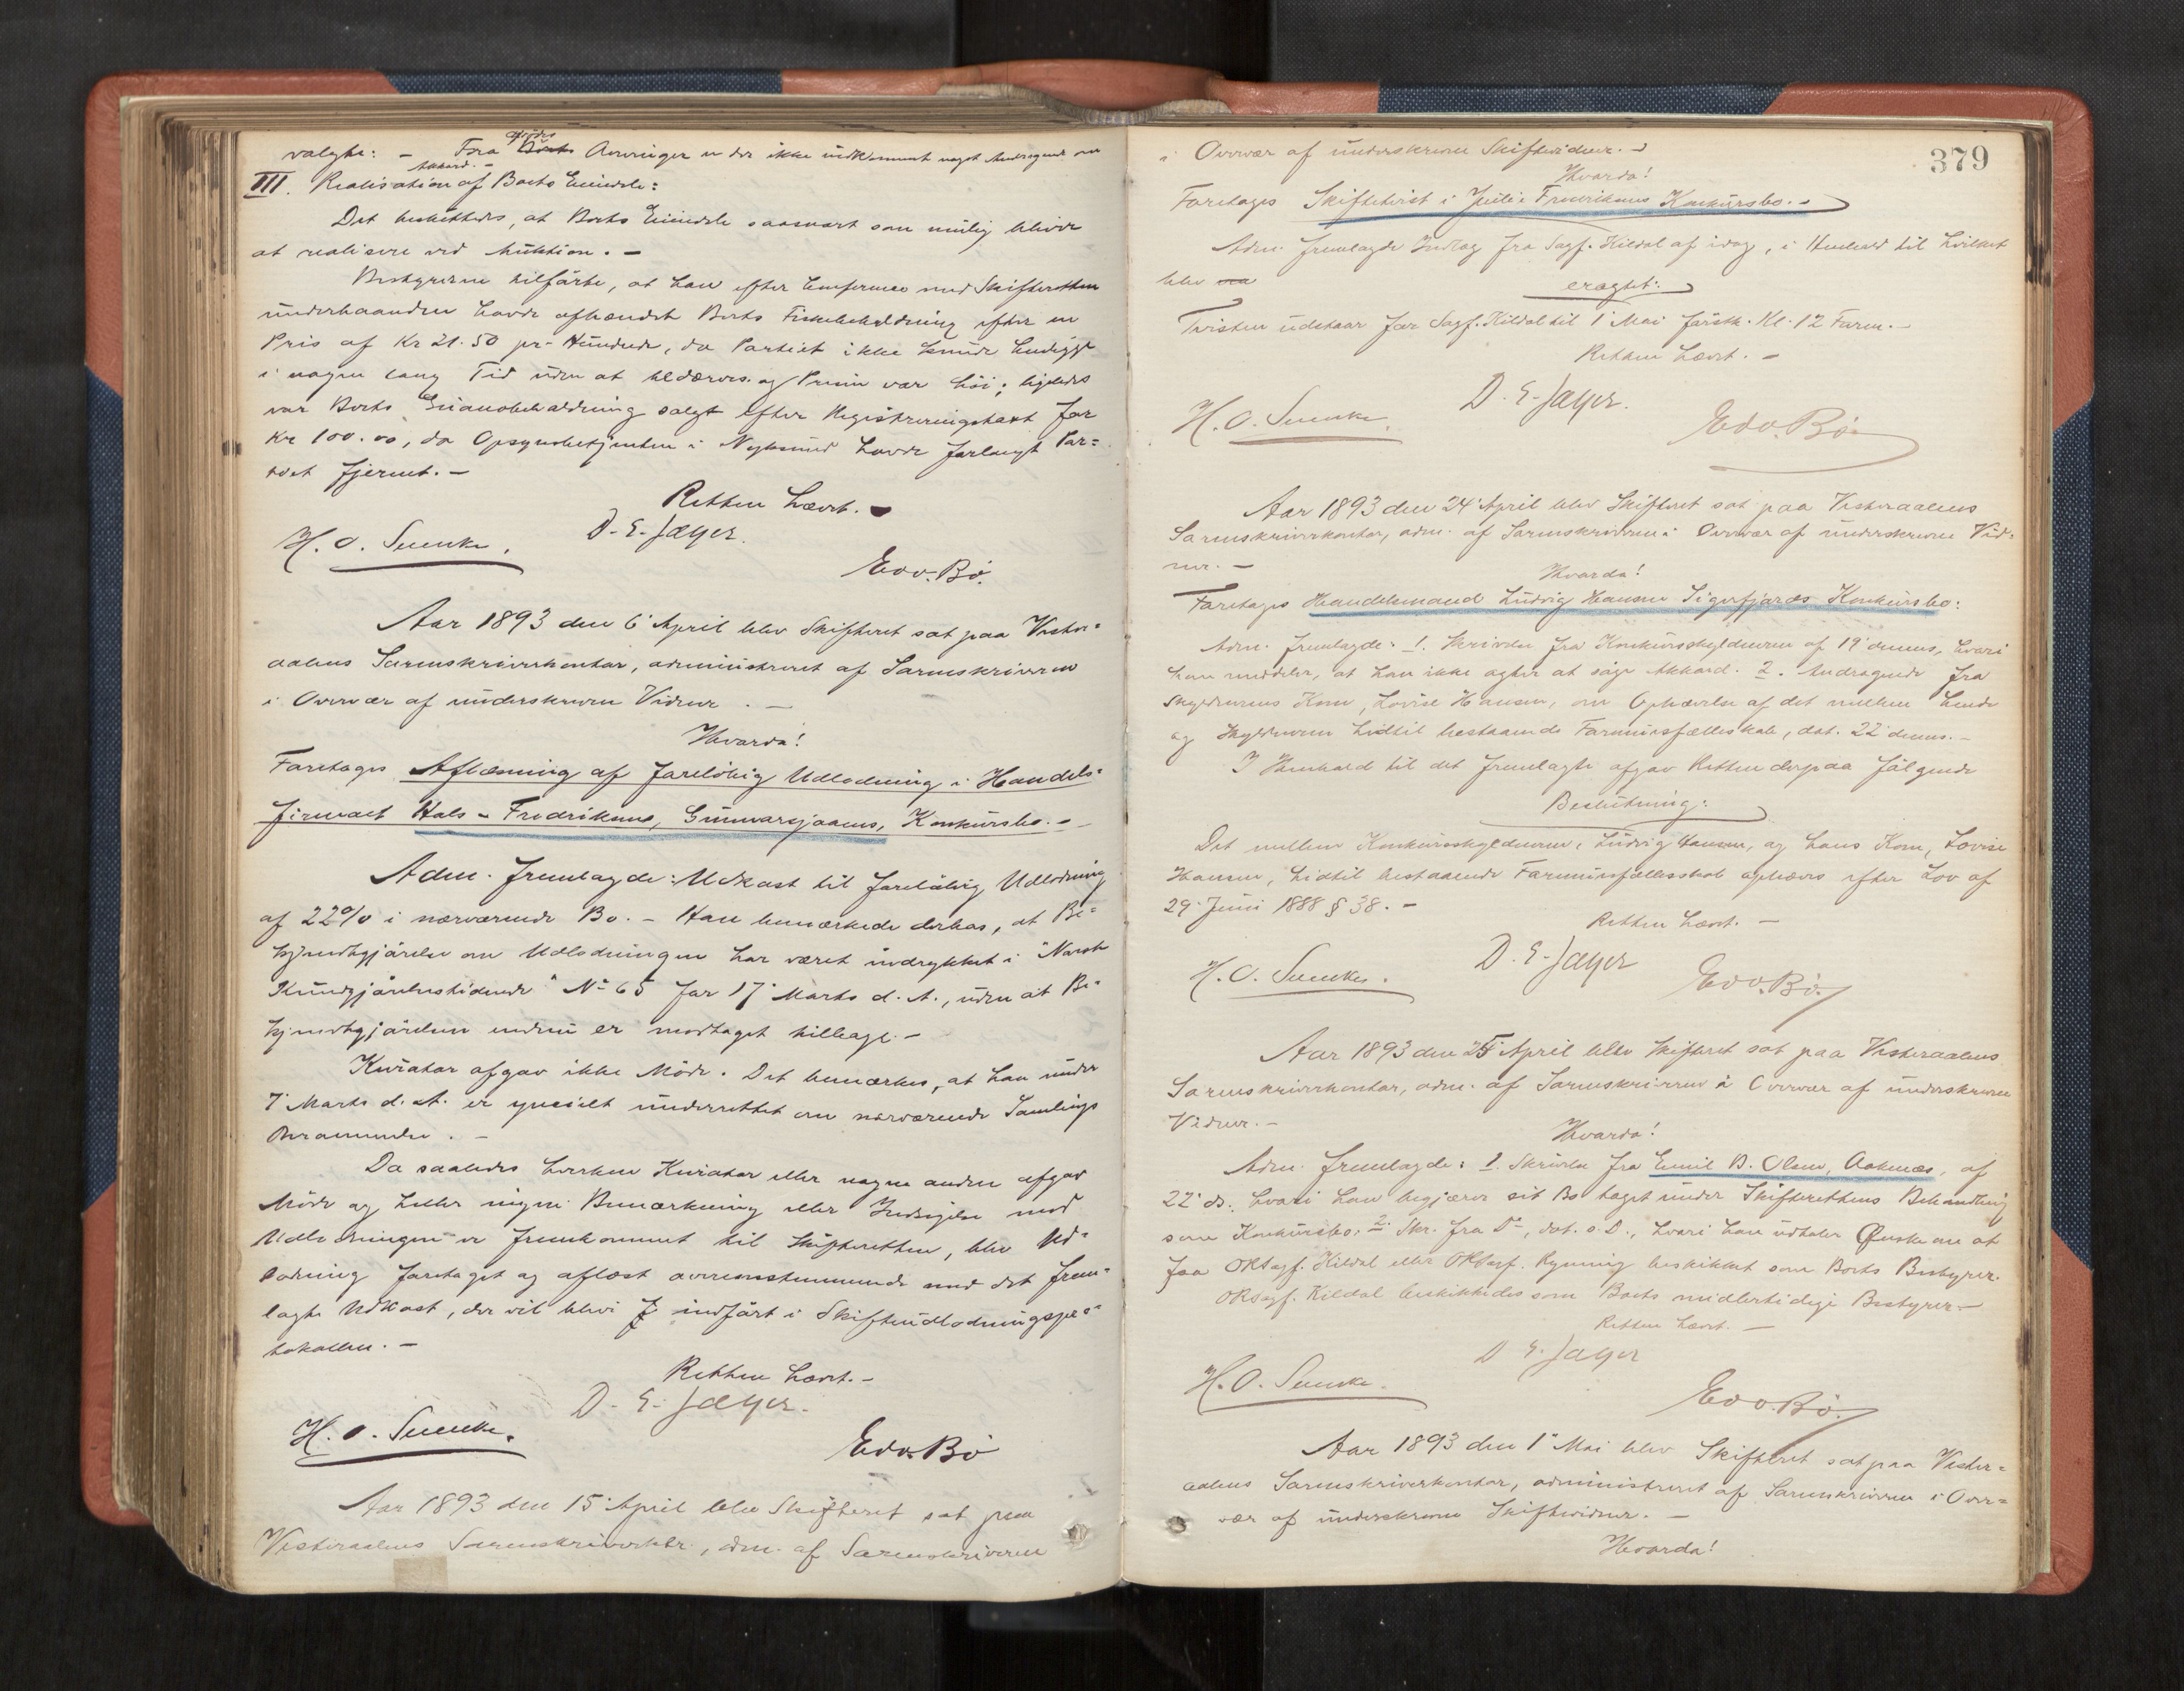 valgte: - Fra Boets Arvinger er der ikke indkommet noget Andragende om
Akkord. -
III. Realisation af Boets Eiendele:
Det besluttedes, at Boets Eiendele saasnart som mulig bliver
at realisere ved Auktion. -
Bestyreren tilførte, at han efter Conference med Skifteretten
underhaanden havde afhændet Boets Fiskebeholdning efter en
Pris af Kr 21.50 pr. Hundrede, da Partiet ikke kunde henligge
i nogen lang Tid uden at bedærves og Prisen var høi; ligeledes
var Boets Guanobeholdning solgt efter Registreringstaxt for
Kr 100.00, da Opsynsbetjenten i Nyksund havde forlangt Par=
tiet fjernet. -
Retten hævet. -
H. O. Suencke. D. E. Jæger.
Edv. Bø.
Aar 1893 den 6' April blev Skifteret sat paa Vester=
aalens Sorenskriverkontor, administreret af Sorenskriveren
i Overvær af underskrevne Vidner. -
Hvorda!
Foretoges Aflæsning af foreløbig Udlodning i Handels=
firmaet Hals - Fredriksens, Gunnarsjaaens, Konkursbo. -
Adm. fremlagde: Udkast til foreløbig Udlodning
af 22% i nærværende Bo. - Han bemærkede derhos, at Be=
kjendtgjørelse om Udlodningen har været indrykket i "Norsk
Kundgjørelsestidende" No 65 for 17' Marts d. A., uden at Be=
kjendtgjørelsen endnu er modtaget tilbage. -
Kurator afgav ikke Møde. Det bemærkes, at han under
7' Marts d. A. er specielt underrettet om nærværende Samlings
Berammelse. -
Da saaledes hverken Kurator eller nogen anden afgav
Møde og heller ingen Bemærkning eller Indsigelse mod
Udlodningen er fremkommet til Skifteretten, blev Ud=
lodning foretaget og aflæst overensstemmende med det frem=
lagte Udkast, der vil blive indført i Skifteudlodningspro=
tokollen. -
Retten hævet. -
D. E. Jæger.
H. O. Suencke.
Edv. Bø
Aar 1893 den 15' April blev Skifteret sat paa
Vesteraalens Sorenskriverktr., adm. af Sorenskriveren
379
i Overvær af underskrevne Skiftevidner. -
Hvorda!
Foretoges Skiftetvist i Julie Fredriksens Konkursbo. -
Adm. fremlagde Indlæg fra Sagf. Kildal af idag, i Henhold til hvilket
blev
eragtet:
Tvisten udstaar for Sagf. Kildal til 1' Mai førstk. Kl. 12 Form. -
Retten hævet. -
D. E. Jæger.
H. O. Suencke.
Edv. Bø
Aar 1893 den 24' April blev Skifteret sat paa Vesteraalens
Sorenskriverkontor, adm. af Sorenskriveren i Overvær af underskrevne Vid=
ner. -
Hvorda!
Foretoges Handelsmand Ludvig Hansen Sigerfjords Konkursbo:
Adm. fremlagde: 1. Skrivelse fra Konkursskyldneren af 19' dennes, hvori
han meddeler, at han ikke agter at søge Akkord. 2. Andragende fra
Skyldnerens Kone, Lovise Hansen, om Ophævelse af det mellem hende
og Skyldneren hidtil bestaaende Formuesfælleskab, dat. 22' dennes. -
I Henhold til det fremlagte afgav Retten derpaa følgende
Beslutning:
Det mellem Konkursskyldneren, Ludvig Hansen, og hans Kone, Lovise
Hansen, hidtil bestaaende Formuesfællesskab ophæves efter Lov af
29' Juni 1888 § 38. -
Retten hævet. -
D. E. Jæger
H. O. Suencke.
Edv. Bø.
Aar 1893 den 25' April blev Skifteret sat paa Vesteraalens
Sorenskriverkontor, adm. af Sorenskriveren i Overvær af underskrevne
Vidner. -
Hvorda!
Adm. fremlagde: 1. Skrivelse fra Emil B. Olsen, Aaknæs, af
22' ds., hvori han begjærer sit Bo taget under Skifterettens Behandling
som Konkursbo. 2. Skr. fra Do, dat. s. D., hvori han udtaler Ønske om at
faa ORsagf. Kildal eller ORsagf. Rynning beskikket som Boets Bestyrer.
ORsagf. Kildal beskikkedes som Boets midlertidige Bestyrer. -
Retten hævet. -
D. E. Jæger
H. O. Suencke.
Edv. Bø.
Aar 1893 den 1' Mai blev Skifteret sat paa Vester=
aalens Sorenskriverkontor, administreret af Sorenskriveren i Over=
vær af underskrevne Skiftevidner. -
Hvorda!